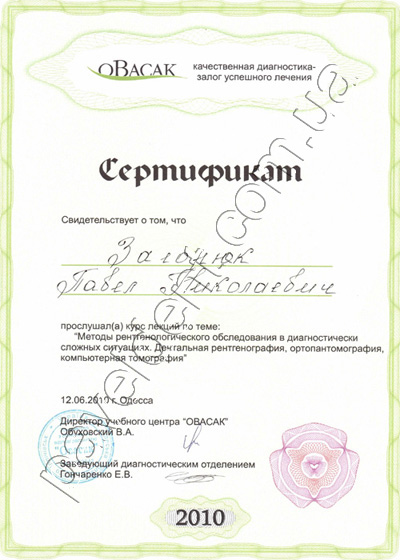 ОВАСАК
качественная диагностика-
залог успешного лечения
Сертификат
Свидетельствует о том, что
Павел Николаевич
прослушал(а) курс лекций по теме:
"Методы рентгенологического обследования в диагностически
сложных ситуациях. Дентальная рентгенография, ортопантомография,
компьютерная томография"
12.06.2010 г. Одесса
Директор учебного центра "ОВАСАК"
Обуховский В.А.
Заведующий диагностическим отделением
Гончаренко Е.В.
2010